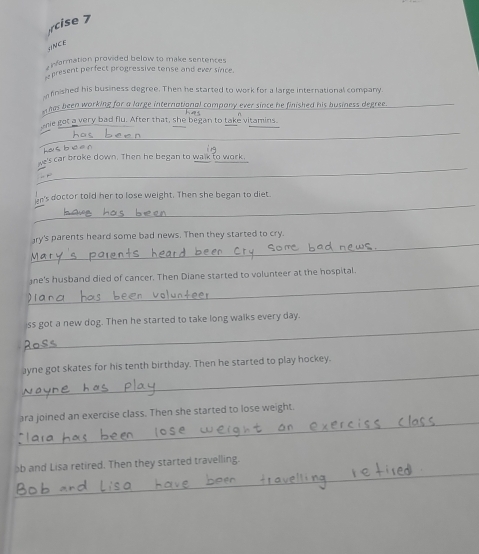 rcise 7
INCE
information provided below to make sentences
present perfect progressive tense and ever since.
finished his business degree. Then he started to work for a large international company.
has been working for a large international company ever since he finished his business degree.
has n
got a very bad flu. After that, she began to take vitamins.
has been
has been
ing
ve's car broke down. Then he began to walk to work.
en's doctor told her to lose weight. Then she began to diet.
has been
ary's parents heard some bad news. Then they started to cry.
Mary s parents heard been cry some bad news.
ane's husband died of cancer. Then Diane started to volunteer at the hospital.
Diana has been volunteer
ss got a new dog. Then he started to take long walks every day.
Ross
ayne got skates for his tenth birthday. Then he started to play hockey.
Wayne has play
ara joined an exercise class. Then she started to lose weight.
Clara has been lose weight an exerciss class
ob and Lisa retired. Then they started travelling.
Bob and Lisa have been travelling retired.